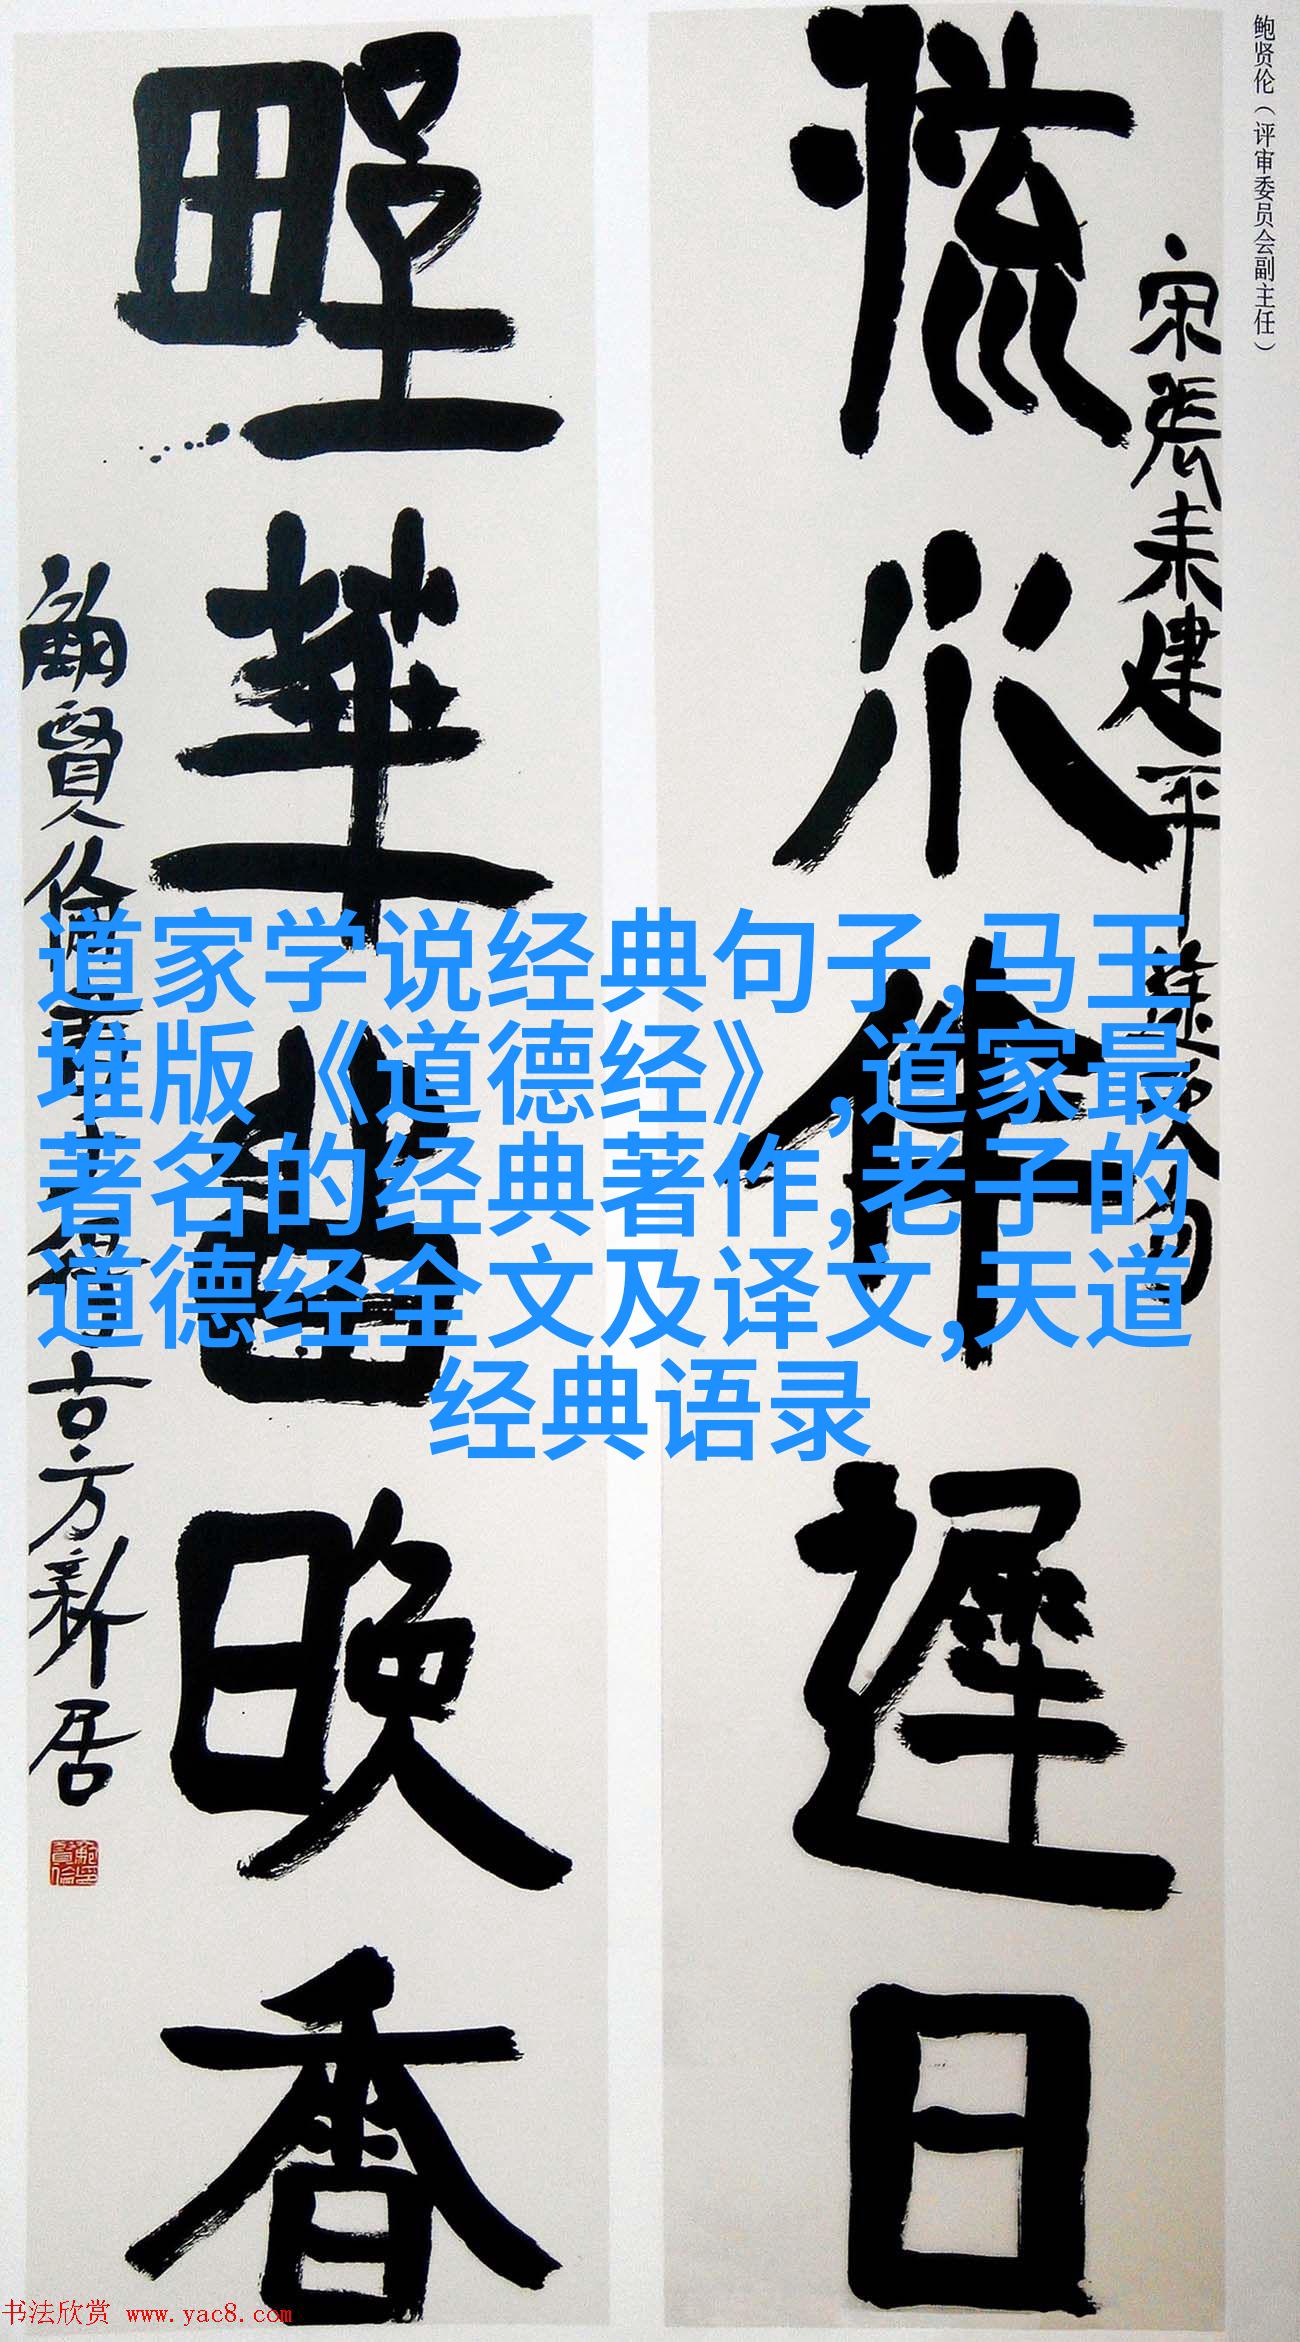 鲍贤伦（评审委员会副主任）
宋張耒建平途次句
流水作遲日
野華晚香
鮑賢倫古方新居
道家学说经典句子,马王
堆版《道德经》,道家最
著名的经典著作,老子的
道德经全文及译文,天道
经典语录
书法欣赏 www.yac8.com